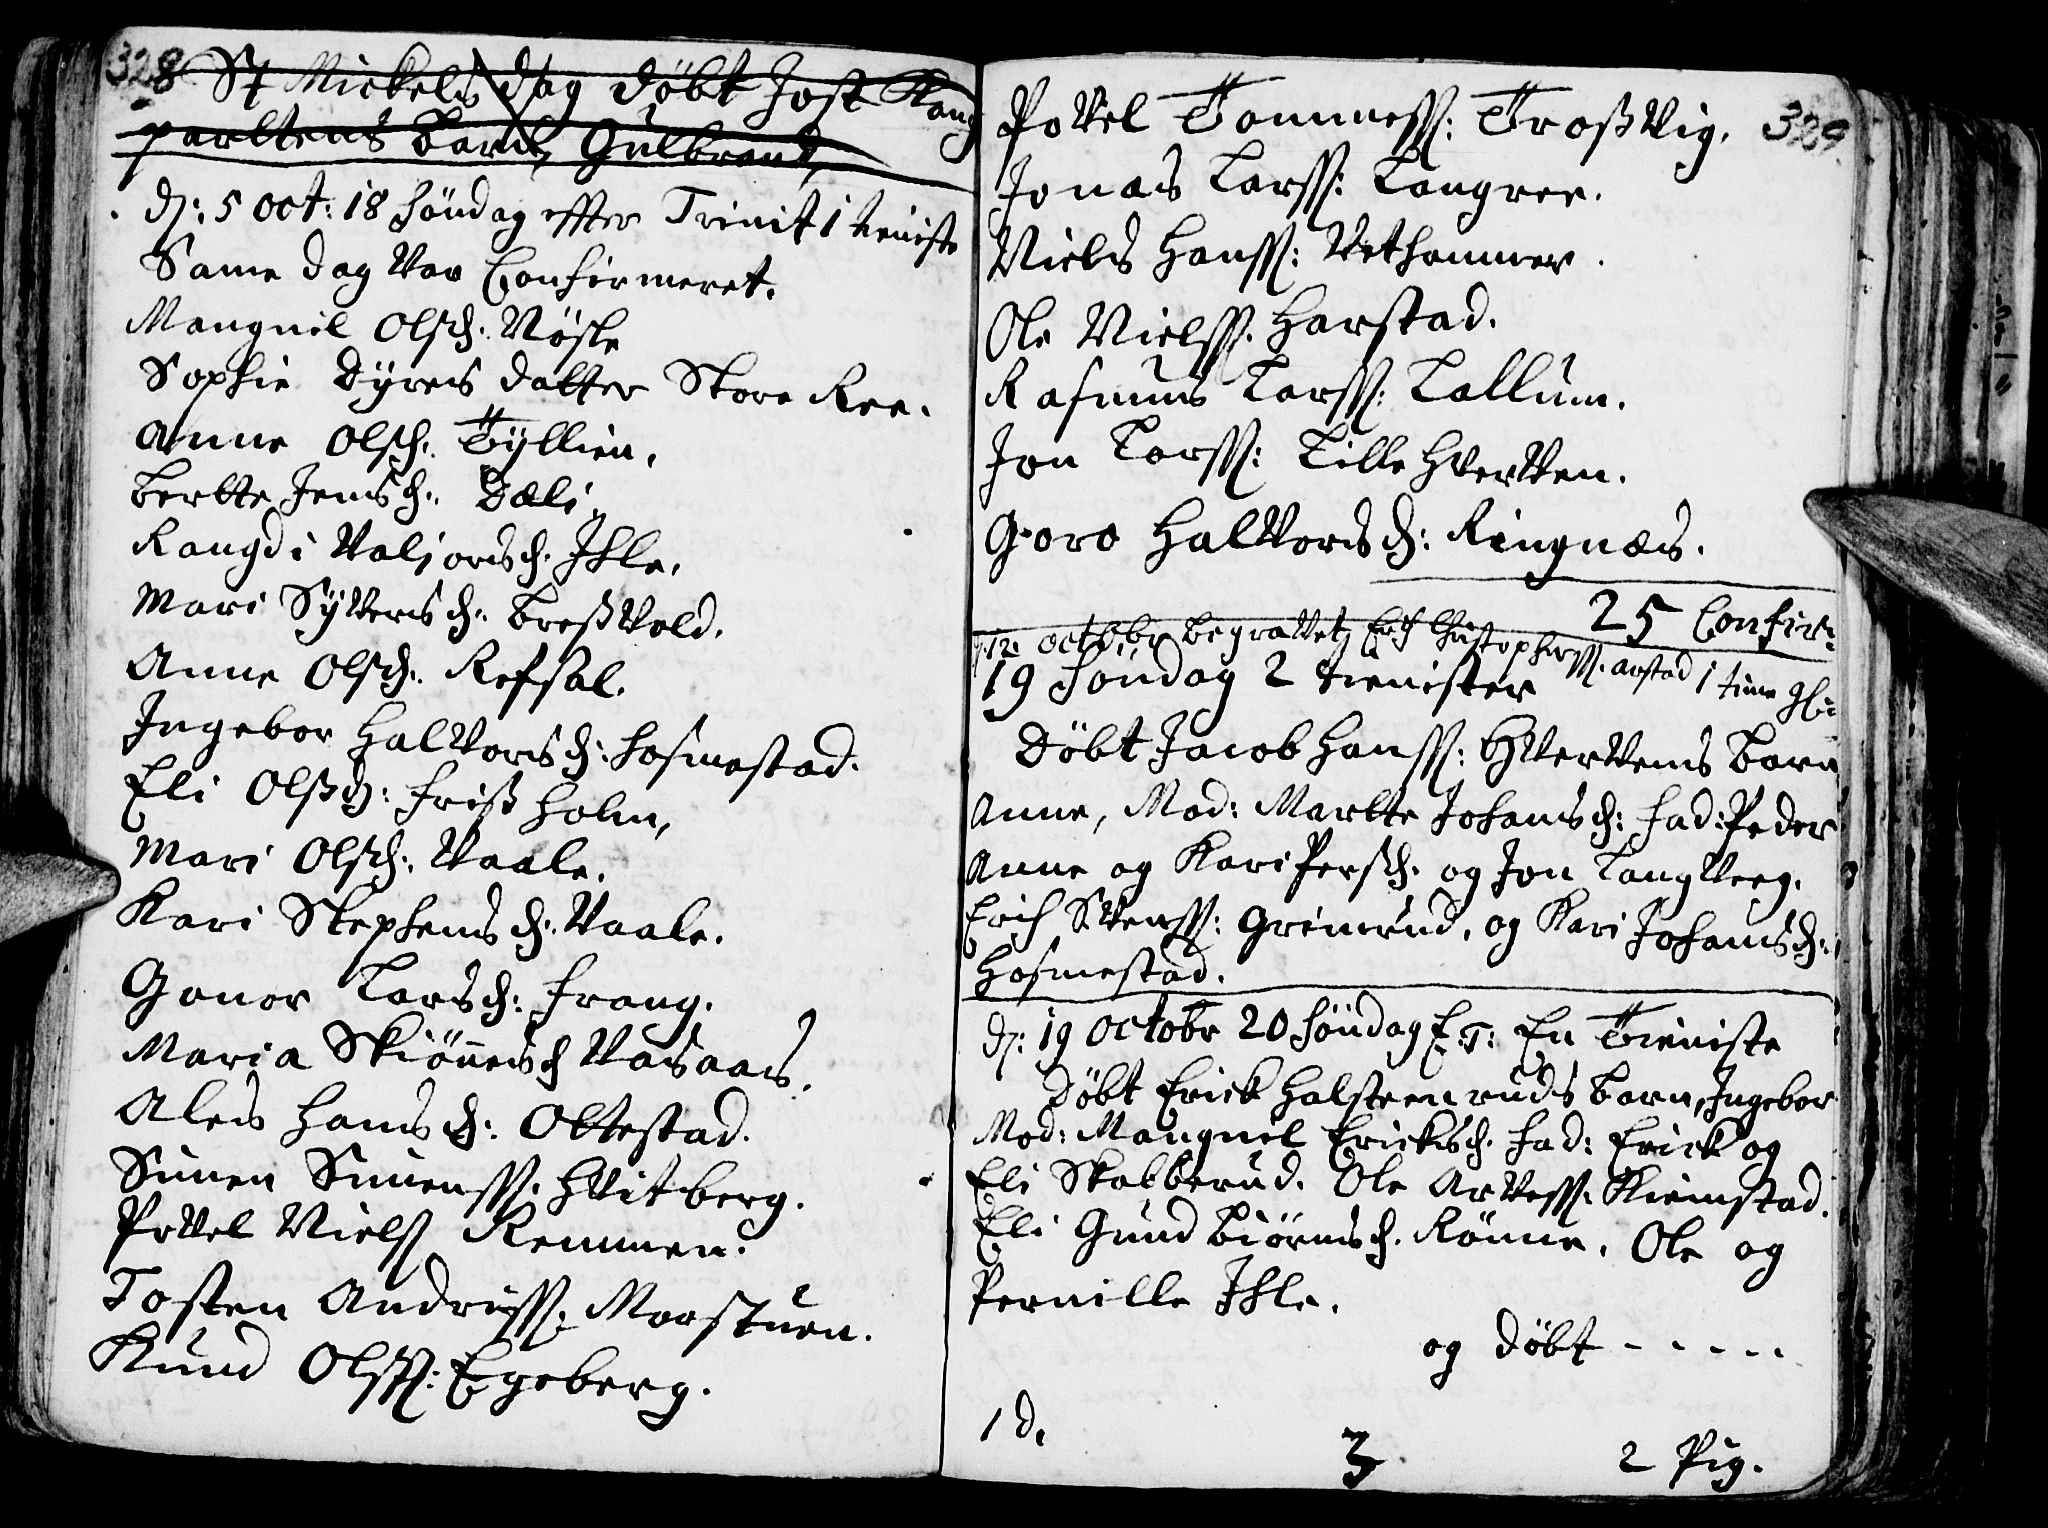 328
St Mickels dag döbt Jost Kong
parltens barn, Gulbrand,
d: 5 oct: 18 Söndag effter Trinit 1 tieniste
Same dag var Confirmeret.
Mangnil Olsd: Nösle
Sophie Dÿres datter Store Ree.
Anne Olsd: Tÿllien,
Bertte Jensd: Dæli,
Rangdi Valjorsd. Ihle,
Mari Sÿversd: Breßvold.
Anne Olsd: Refsal.
Ingebor Halvorsd: Hosmestad.
Eli Olßd: Frißholm,
Mari Olsd: Vaale.
Kari Stephensd: Vaale.
Gonor Larsd: Frang.
Maria Skiönnesd Vasaas.
Ales Hansd: Ottestad.
Simen Simenss: Hvitberg.
Povel Niels Remmen.
Tosten Andriss: Morstuen.
Knud Olss: Egeberg.
329
Povel Tommess: Troßvig.
Jonas Larss: Langree.
Niels Hanss: Vethammer.
Ole Nielss. Harstad.
Rasmus Larss: Lallum.
Jon Larss: Lille Hverven.
Goro Halvorsd: Ringnæs.
25 Confir:
d. 12. octobr begravet, Erich Christopherss. arstad 1 time gl:
19 Söndag 2 tienister
Döbt Jacob Hanss: Hvervens barn
Anne, Mod: Martte Johansd: Fad: Peder
Anne og Kari Persd. og Jon Langveeg.
Erich Svenss: Grimrud, og Kari Johansd:
Hosmestad.
d: 19 octobr 20 Söndag E: T: En Tieniste
Döbt Erick Halsteenruds barn, Ingebor
Mod: Mangnil Ericksd. Fad: Erick og
Eli Skabberud. Ole Arvess: Kiemstad.
Eli Gundbiörnsd. Rönne. Ole og
Pernille Ihle.
og döbt - - - - -
1 d. 3 2 Pig.